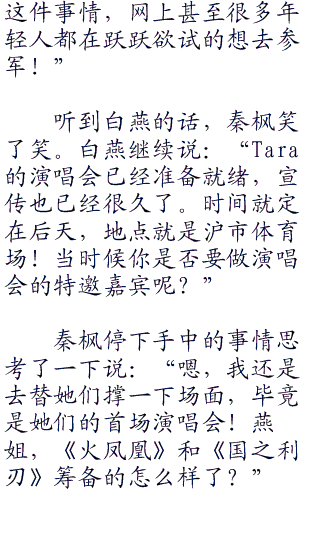 这件事情，网上甚至很多年
轻人都在跃跃欲试的想去参
军！”
听到白燕的话，秦枫笑
了笑。白燕继续说：“Tara
的演唱会已经准备就绪，宣
传也已经很久了。时间就定
在后天，地点就是沪市体育
场！当时候你是否要做演唱
会的特邀嘉宾呢？”
秦枫停下手中的事情思
考了一下说：“嗯，我还是
去替她们撑一下场面，毕竟
是她们的首场演唱会！燕
姐，《火凤凰》和《国之利
刃》筹备的怎么样了？”